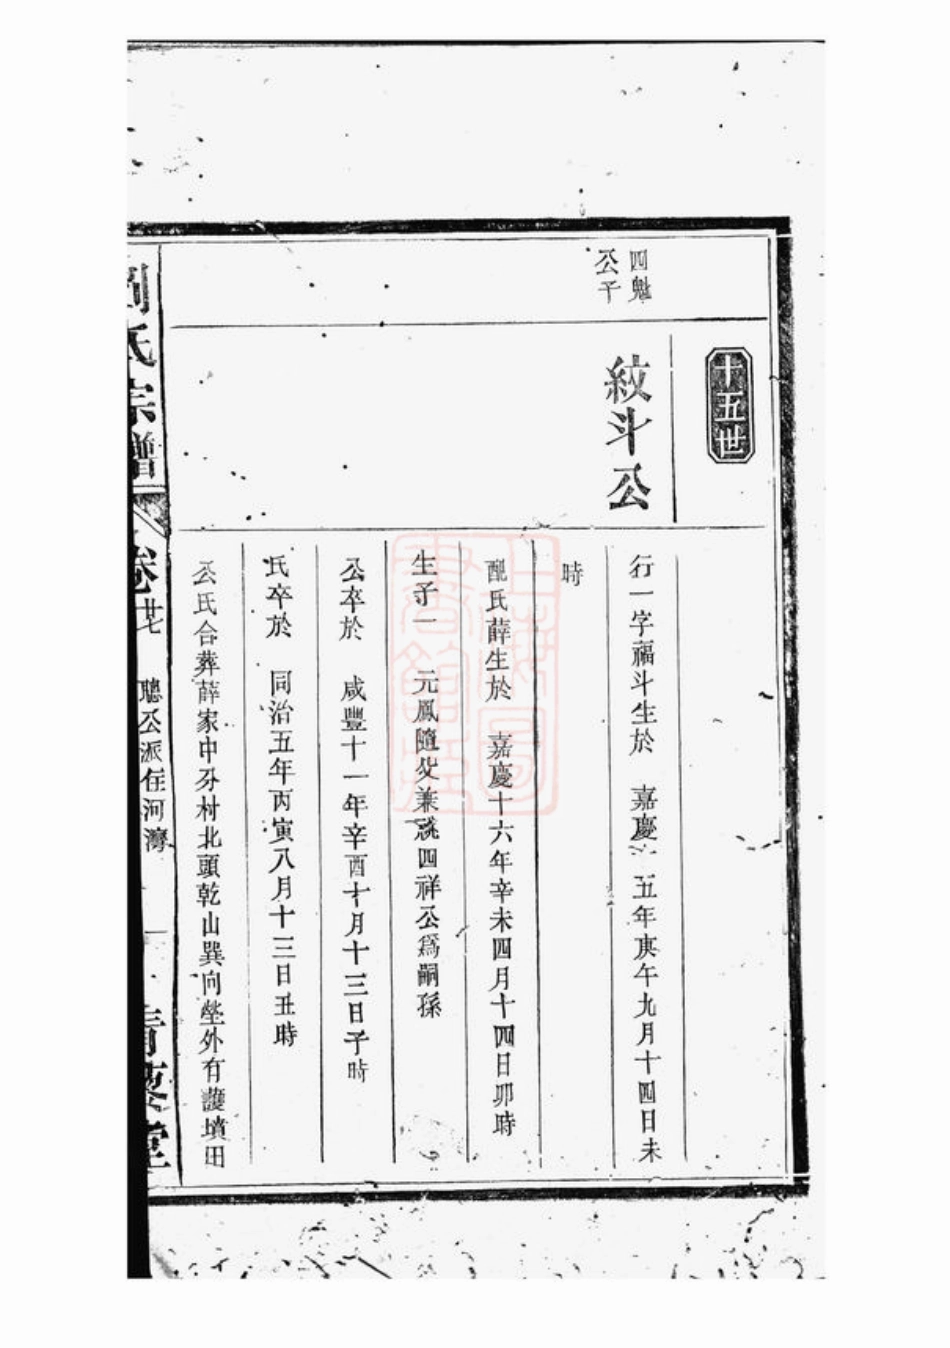 十五世
四魁
公干
紋斗公
行一字福斗生於 嘉慶 五年庚午九月十四日未
時
配氏薛生於 嘉慶十六年辛未四月十四日卯時
生子一 元鳳隨父兼祧四祥公為嗣孫
公卒於 咸豐十一年辛酉十月十三日子時
氏卒於 同治五年丙寅八月十三日丑時
公氏合葬薛家中分村北頭乾山巽向塋外有護墳田
劉氏宗譜 卷廿七 聽公派住河灣 一 青藜堂